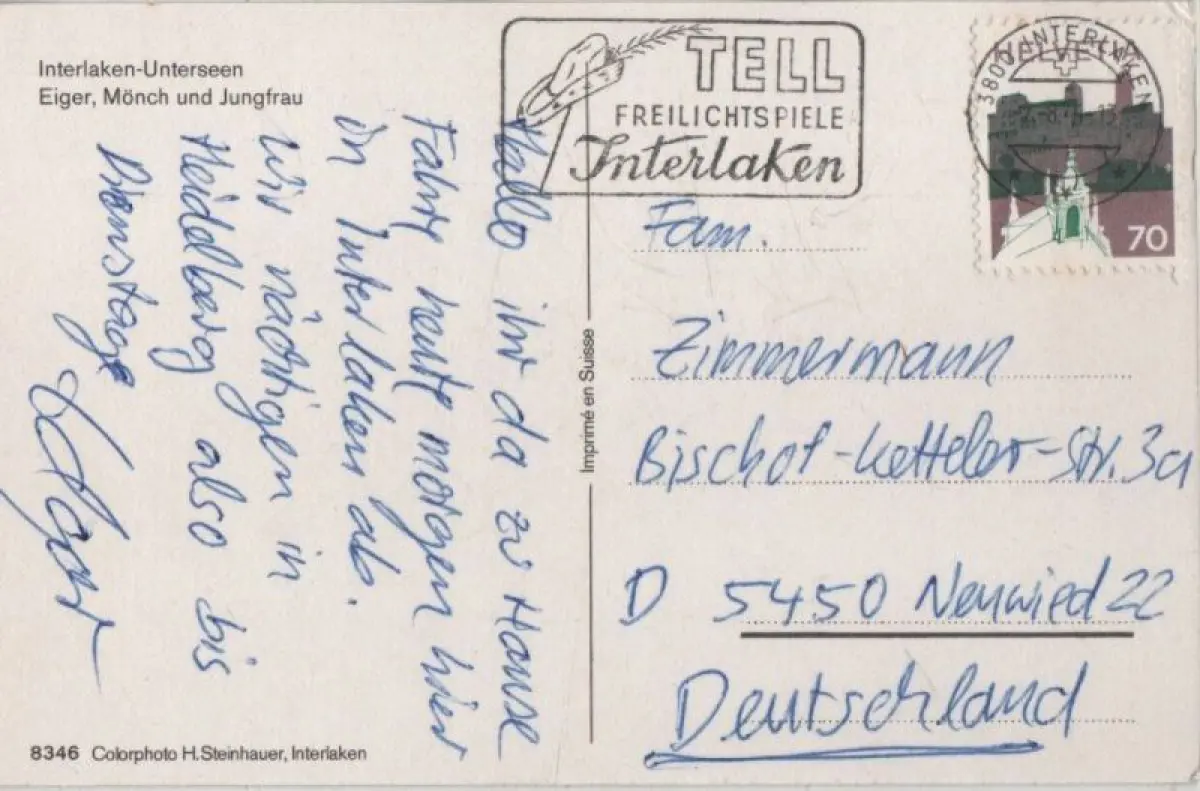 Interlaken-Unterseen
Eiger, Mönch und Jungfrau
Hallo ihr da zu Hause
Fahre heute morgen hier
in Interlaken ab.
Wir nächtigen in
Heidelberg also bis
Dienstag
8346 Colorphoto H.Steinhauer, Interlaken
Imprimé en Suisse
TELL
FREILICHTSPIELE
Interlaken
3800 INTERLAKEN
HELVETIA
70
Fam.
Zimmermann
Bischof-Ketteler-Str. 3a
D 5450 Neuwied 22
Deutschland